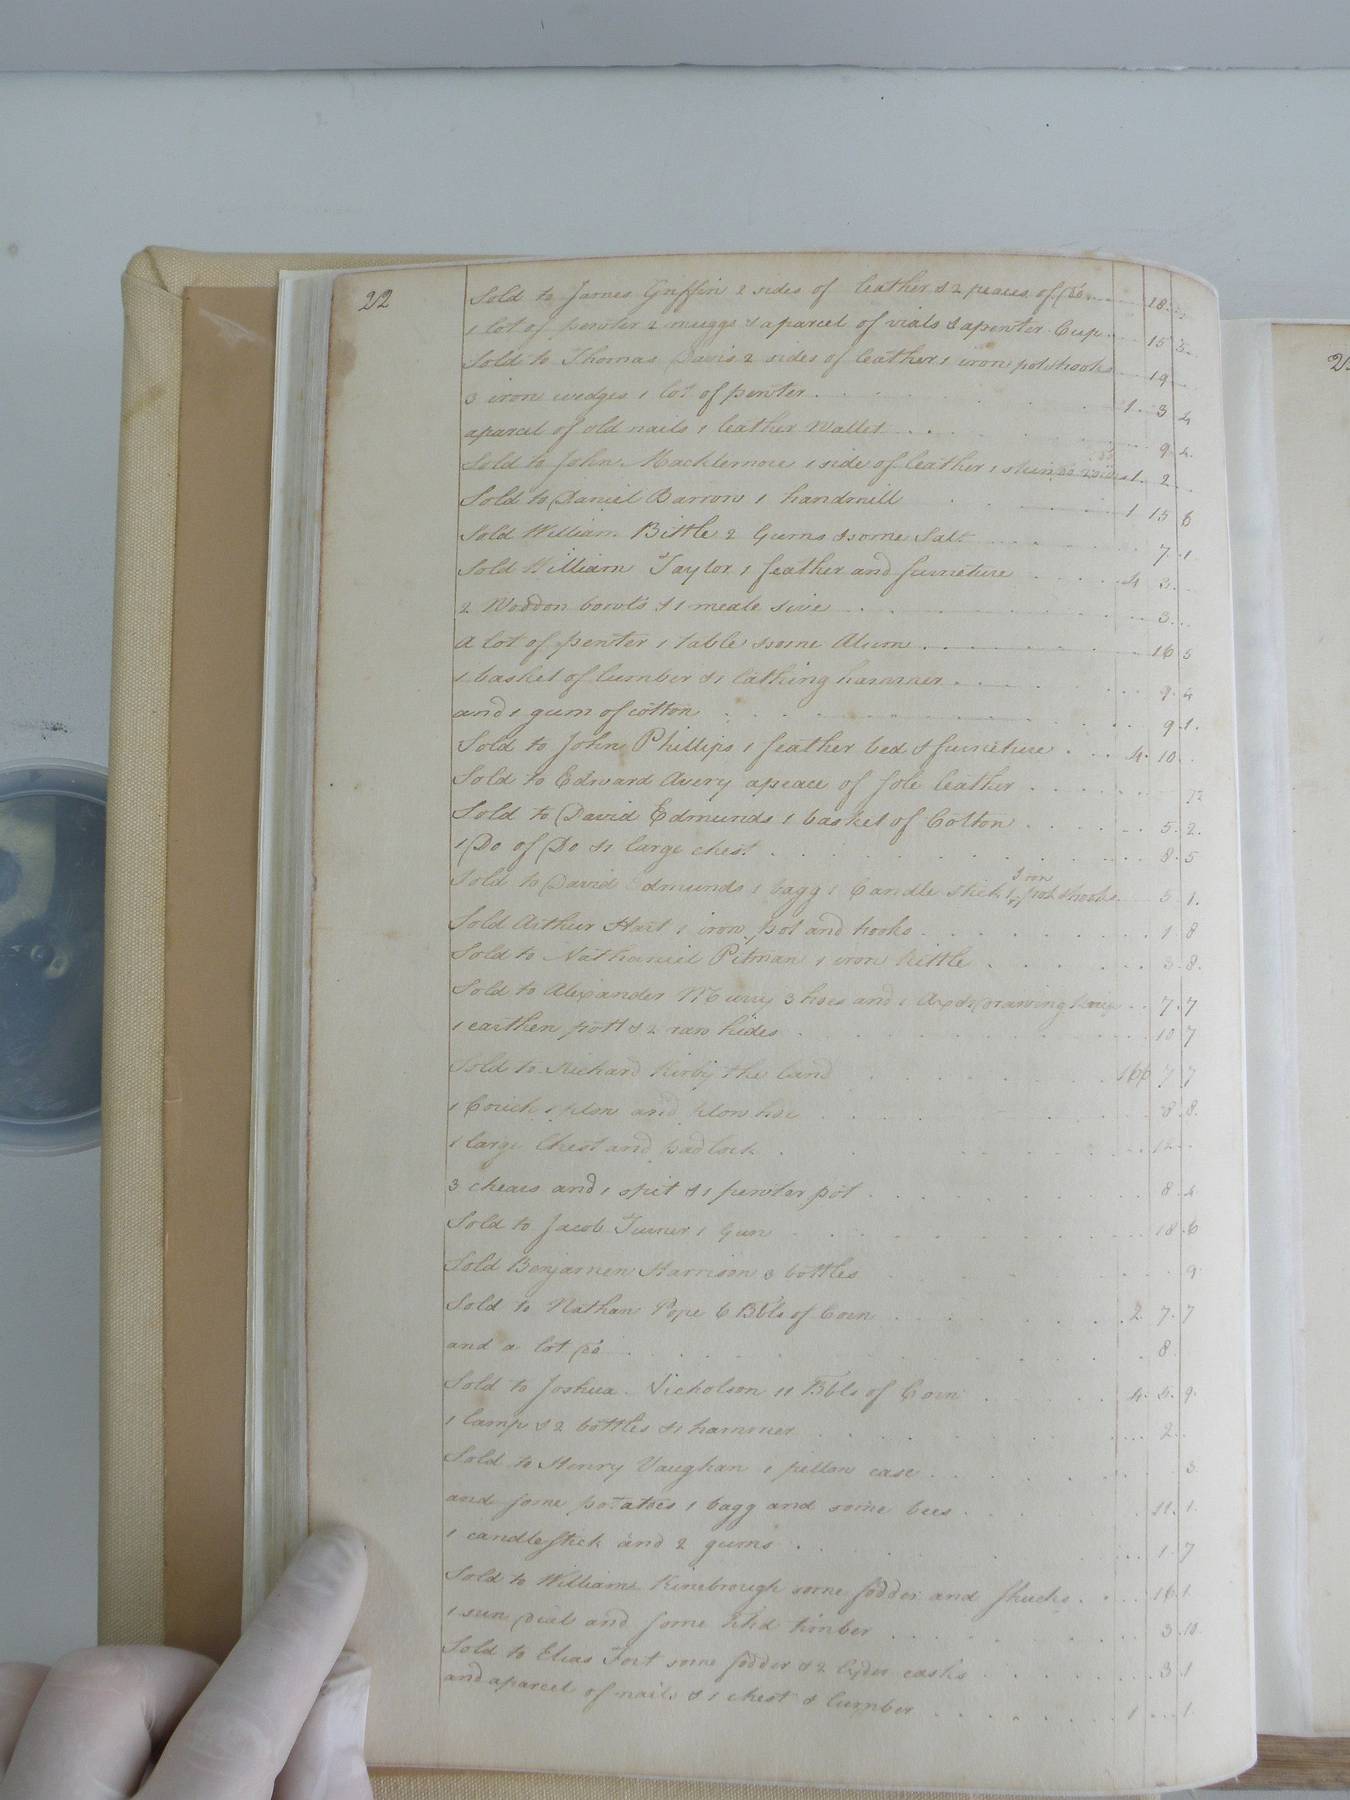 22
Sold to James Griffin 2 sides of leather & 2 peaces of Do 18
1 lot of pewter 2 muggs & a parcel of vials & a pewter Cup 15 5
Sold to Thomas Davis 2 sides of leather 1 iron pot & hooks 19
3 iron wedges 1 lot of pewter 1 3 4
a parcel of old nails 1 leather Wallet 9 4
Sold to John Macklemore 1 side of leather 1 1 2
Sold to Daniel Barrow 1 handmill 1 15 6
Sold William Bittle 2 Gums & some Salt 7 1
Sold William Taylor 1 feather and furneture 4 3
2 Woddon bowls & 1 meale sive 3
a lot of pewter 1 table & some Alum 16 5
1 basket of lumber & 1 lathing hammer 9 4
and 1 gum of cotton 9 1
Sold to John Phillips 1 feather bed & furneture 4 10
Sold to Edward Avery a peace of sole leather 7½
Sold to David Edmunds 1 basket of Cotton 5 2
1 Do of Do & 1 large chest 8 5
Sold to David Edmunds 1 bagg 1 Candle stick 1 Iron pot & hooks 5 1
Sold Arthur Hart 1 iron pot and hooks 1 8
Sold to Nathaniel Pitman 1 iron kittle 3 8
Sold to Alexander McCurry 3 hoes and 1 Ax & 1 Drawing knife 7 7
1 earthen pott & 2 raw hides 10 7
Sold to Richard Kirby the land 166 7 7
1 Couch 1 plow and plow hoe 8 8
1 large Chest and padlock 12
3 chears and 1 spit & 1 pewter pot 8 4
Sold to Jacob Turner 1 Gun 18 6
Sold Benjamen Harrison 3 bottles 9
Sold to Nathan Pope 6 Bbls of Corn 2 7 7
and a lot Do 8
Sold to Joshua Nicholson 11 Bbls of Corn 4 4 9
1 lamp & 2 bottles & 1 hammer 2
Sold to Henry Vaughan 1 pillow case 3
and some potatoes 1 bagg and some bees 11 1
1 candlestick and 2 gums 1 7
Sold to William Kinebrough some fodder and shucks 16 1
1 sun dial and some timber 3 10
Sold to Elias Fort some fodder & 2 Cyder casks 3 1
and a parcel of nails & 1 chest & lumber 1 1